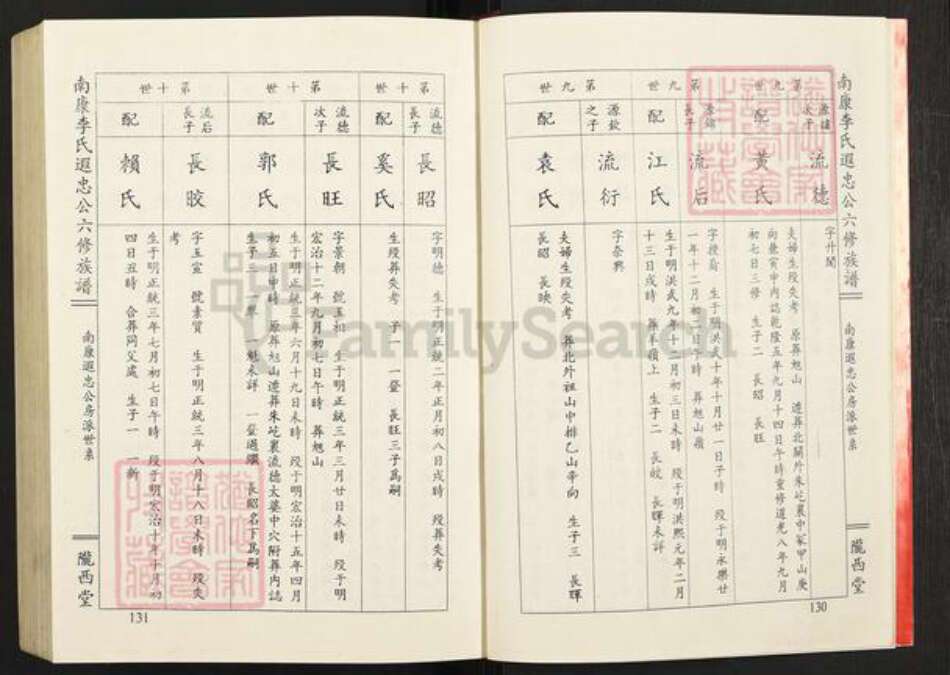 南康李氏遐忠公六修族譜
南康遐忠公房派世系
隴西堂
130
第九世
源鏞次子
流德
字廾閏
配
黃氏
夫婦生歿失考 原葬旭山 遷葬北關外朱屹裏中冢甲山庚
向兼寅申內誌乾隆五年九月十四日午時重修道光八年九月
初七日三修 生子二 長昭 長旺
第九世
長子
流后
一年十二月初二日午時 葬旭山嶺
配
江氏
生于明洪武九年十二月初三日未時 歿于明洪熙元年二月
十三日戌時 葬羊嶺上 生子二 長皎 長暉未詳
第九世
源欽之子
流衍
字奈興
配
袁氏
夫婦生歿失考 葬北外祖山中排乙山辛向 生子三 長暉
長昭 長映
第十世
流德長子
長昭
字明德 生于明正統二年正月初八日戌時 歿葬失考
配
奚氏
生歿葬失考 子一 一瑩 長旺三子為嗣
第十世
流德次子
長旺
字景朝 號玉和 生于明正統三年三月廿日未時 歿于明
宏治十二年九月初七日午時 葬旭山
配
郭氏
生于明正統三年六月十九日未時 歿于明宏治十五年四月
初五日申時 原葬旭山遷葬朱屹裏流德太婆中穴附葬內誌
生子三 一昇 一魁未詳 一瑩過繼 長昭名下為嗣
第十世
流后長子
長皎
字玉宣 號素質 生于明正統三年八月十八日未時 歿失
考
配
賴氏
生于明正統三年七月初七日午時 歿于明宏治十年十月初
四日丑時 合葬同父處 生子一 一新
南康李氏遐忠公六修族譜
南康遐忠公房派世系
隴西堂
131
FamilySearch